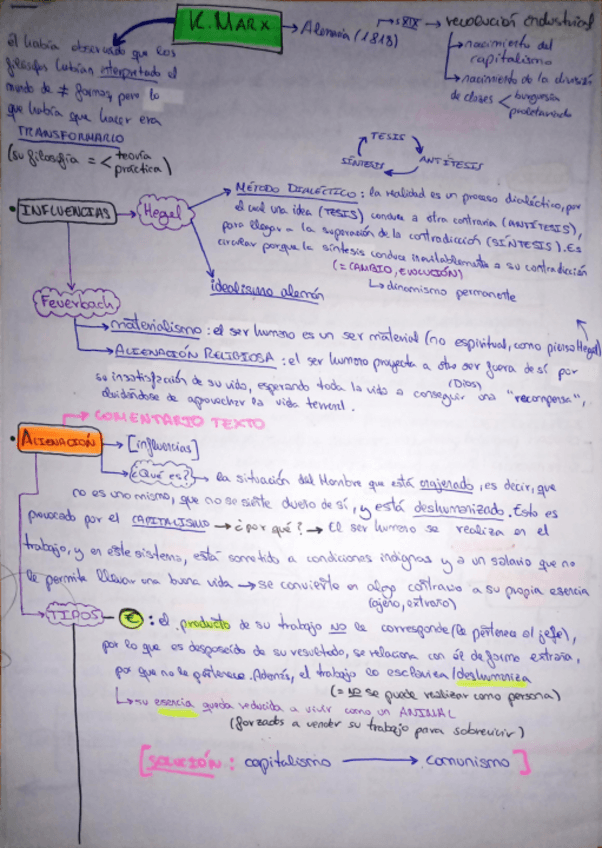 K. MARX → Alemania (1818)
s.XIX → revolución industrial
nacimiento del
capitalismo
nacimiento de la división
de clases < burguesía
proletariado
él había observado que los
filósofos habían interpretado el
mundo de ≠ formas, pero lo
que había que hacer era
TRANSFORMARLO
(su filosofía = < teoría
práctica)
TESIS
ANTÍTESIS
SÍNTESIS
• INFLUENCIAS → Hegel
MÉTODO DIALÉCTICO: la realidad es un proceso dialéctico, por
el cual una idea (TESIS) conduce a otra contraria (ANTÍTESIS),
para llegar a la superación de la contradicción (SÍNTESIS). Es
circular porque la síntesis conduce inevitablemente a su contradicción
(= CAMBIO, EVOLUCIÓN)
↳ dinamismo permanente
idealismo alemán
Feuerbach
→ materialismo: el ser humano es un ser material (no espiritual, como piensa Hegel)
→ ALIENACIÓN RELIGIOSA: el ser humano proyecta a otro ser fuera de sí por
(Dios)
su insatisfacción de su vida, esperando toda la vida a conseguir una "recompensa",
olvidándose de aprovechar la vida terrenal.
→ COMENTARIO TEXTO
• ALIENACIÓN → [influencias]
¿Qué es? → La situación del Hombre que está enajenado, es decir, que
no es uno mismo, que no se siente dueño de sí, y está deshumanizado. Esto es
provocado por el CAPITALISMO → ¿por qué? → El ser humano se realiza en el
trabajo, y en este sistema, está sometido a condiciones indignas y a un salario que no
le permite llevar una buena vida → se convierte en algo contrario a su propia esencia
(ajeno, extraño)
TIPOS - €: el producto de su trabajo NO le corresponde (le pertenece al jefe),
por lo que es desposeído de su resultado, se relaciona con él de forma extraña,
por que no le pertenece. Además, el trabajo lo esclaviza/deshumaniza
(= NO se puede realizar como persona)
↳ su esencia queda reducida a vivir como un ANIMAL
(forzados a vender su trabajo para sobrevivir)
[SOLUCIÓN: capitalismo → comunismo]